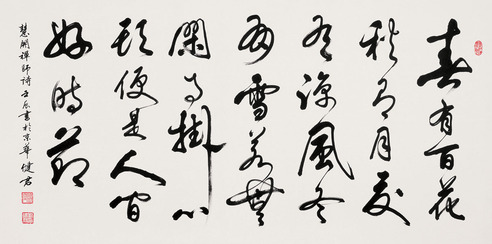 春有百花
秋有月夏
有涼風冬
有雪若無
閑事掛心
頭便是人間
好時節
慧開禪師詩 壬辰書於京華 健君